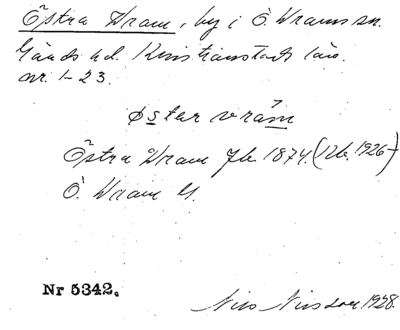 Östra Vram, by i Ö. Vrams sn.
Gärds hd. Kristianstads län.
nr. 1-23.
øster vråm
Östra Vram Jb 1874. (Jb. 1926-)
Ö. Vram G.
Nr 5342.
Nils Nilsson 1928.